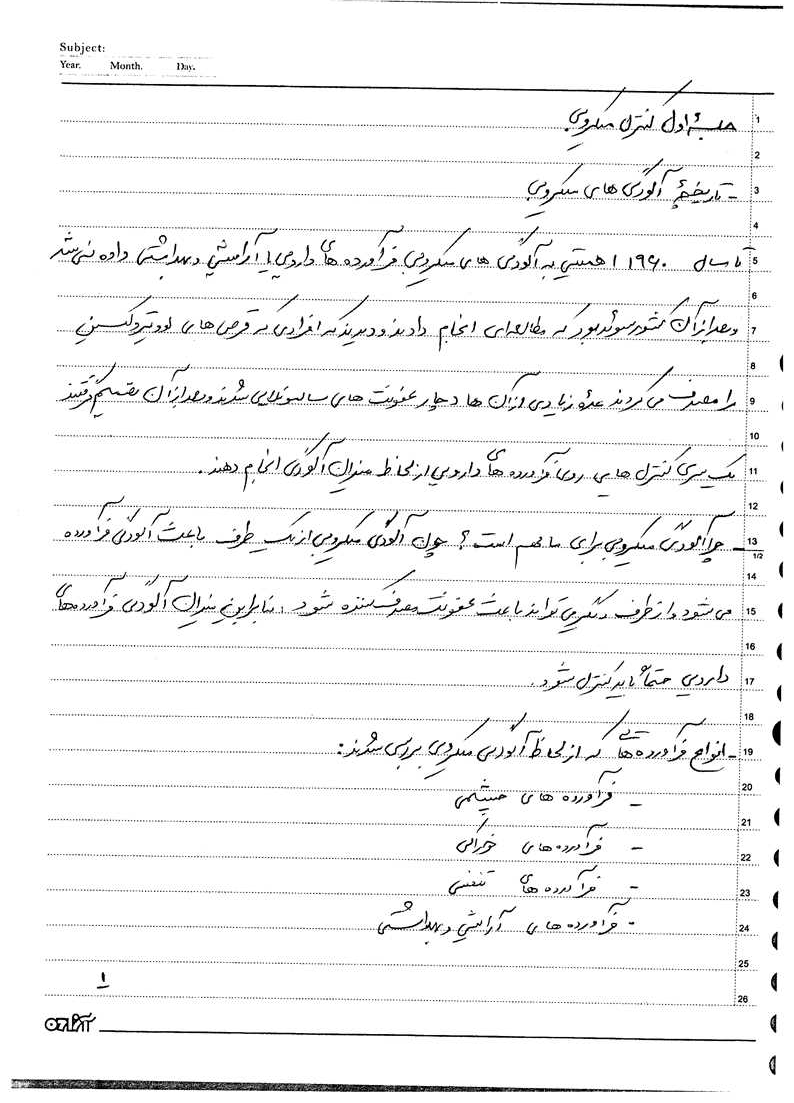 Subject:
Year. Month. Day.
جلسه اول کنترل میکروبی
- تاریخچهٔ آلودگی های میکروبی
تا سال ۱۹۶۰ اهمیتی به آلودگی های میکروبی فرآورده های دارویی یا آرایشی و بهداشتی داده نمی شد
و بعد از آن کشور سوئد بود که مطالعه ای انجام دادند و دیدند که افرادی که قرص های لووتیروکسین
را مصرف می کردند عدهٔ زیادی از آن ها دچار عفونت های سالمونلایی شدند و بعد از آن تصمیم گرفتند
یک سری کنترل هایی روی فرآورده های دارویی از لحاظ میزان آلودگی انجام دهند.
- چرا آلودگی میکروبی برای ما مهم است؟ چون آلودگی میکروبی از یک طرف باعث آلودگی فرآورده
می شود و از طرف دیگر می تواند باعث عفونت مصرف کننده شود، بنابراین میزان آلودگی فرآورده های
دارویی حتماً باید کنترل شود.
- انواع فرآورده هایی که از لحاظ آلودگی میکروبی بررسی شدند:
- فرآورده های چشمی
- فرآورده های خوراکی
- فرآورده های تنفسی
- فرآورده های آرایشی و بهداشتی
۱